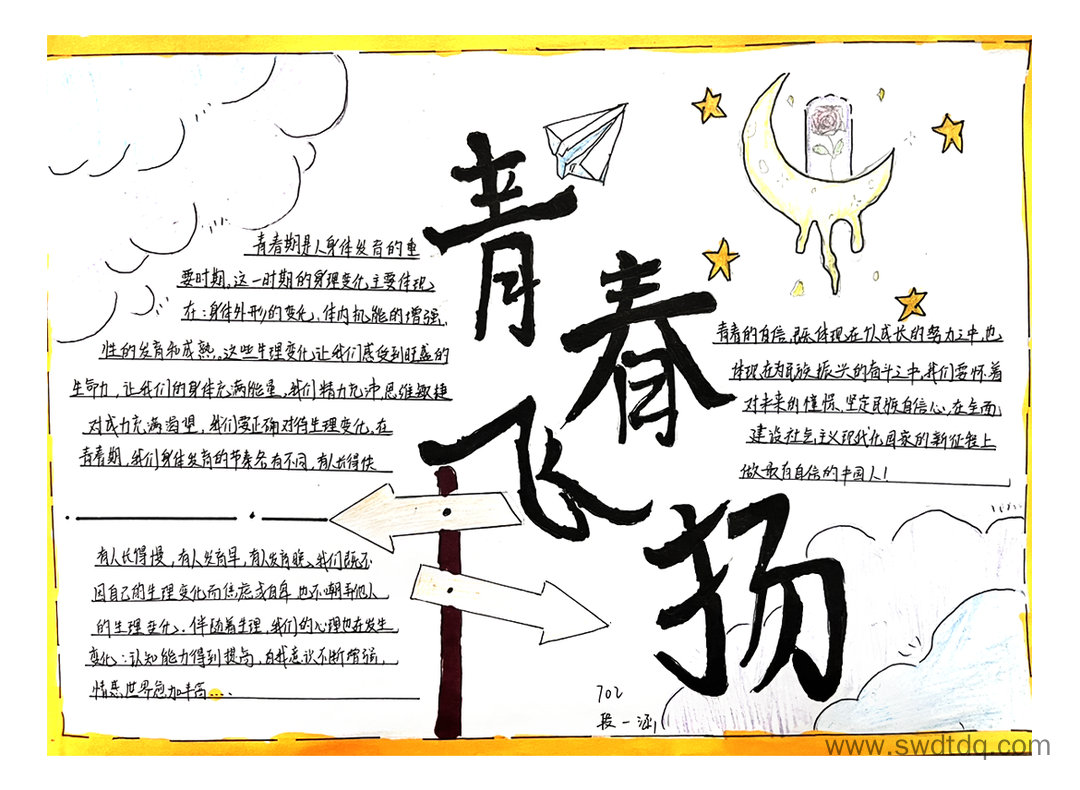 青春飞扬
青春期是人身体发育的重
要时期,这一时期的身理变化主要体现
在:身体外形的变化、体内机能的增强、
性的发育和成熟。这些生理变化让我们感受到旺盛的
生命力,让我们的身体充满能量,我们精力充沛,思维敏捷
对成力充满渴望,我们要正确对待生理变化,在
青春期,我们身体发育的节奏各有不同,有人长得快
有人长得慢,有人发育早,有人发育晚。我们既不
因自己的生理变化而焦虑或自卑,也不嘲弄他人
的生理变化。伴随着生理,我们的心理也在发生
变化:认知能力得到提高,自我意识不断增强,
情感世界愈加丰富....
青春的自信,既体现在个人成长的努力之中,也
体现在为民族振兴的奋斗之中,我们要怀着
对未来的憧憬、坚定民族自信心,在全面
建设社会主义现代化国家的新征程上
做最有自信的中国人!
702
段一涵
www.swdtdq.com